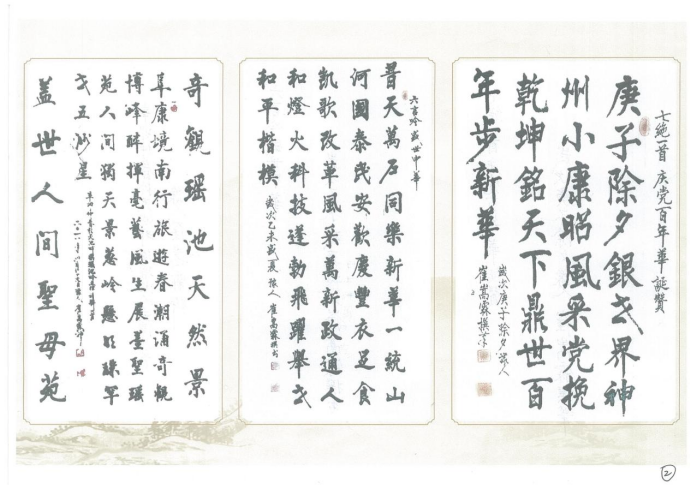 七绝一首 庆党百年华诞赞
庚子除夕銀女界神
州小康昭風采党挽
乾坤銘天下鼎世百
年步新華
歲次庚子除夕豫人
崔嵩霖撰
六言吟盛世中華
普天萬戶同樂新華一統山
河國泰民安歡慶豐衣足食
凱歌改革風采萬新政通人
和燈火科技蓬勃飛躍舉世
和平楷模
歲次乙未盛夏豫人崔嵩霖撰書
奇觀瑶池天然景
阜康境南行旅遊春潮涌奇觀
博峰醉揮毫藝風生展墨聖瑶
苑人间獨天景葱岭懸明珠軍
五沙星
蓋世人間聖母苑
2